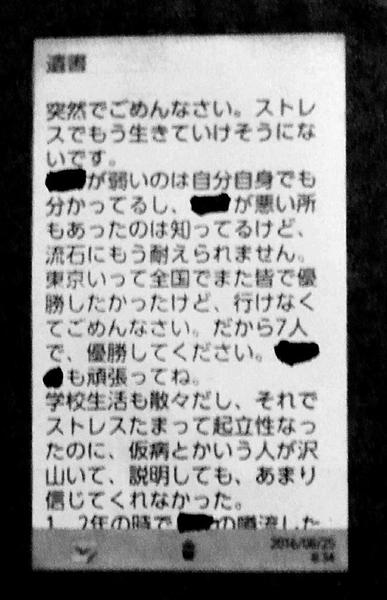 遺書
突然でごめんなさい。ストレ
スでもう生きていけそうにな
いです。
が弱いのは自分自身でも
分かってるし、が悪い所
もあったのは知ってるけど、
流石にもう耐えられません。
東京いって全国でまた皆で優
勝したかったけど、行けなく
てごめんなさい。だから7人
で、優勝してください。
も頑張ってね。
学校生活も散々だし、それで
ストレスたまって起立性なっ
たのに、仮病とかいう人が沢
山いて、説明しても、あまり
信じてくれなかった。
1、2年の時での噂流した
2016/08/25
8:34